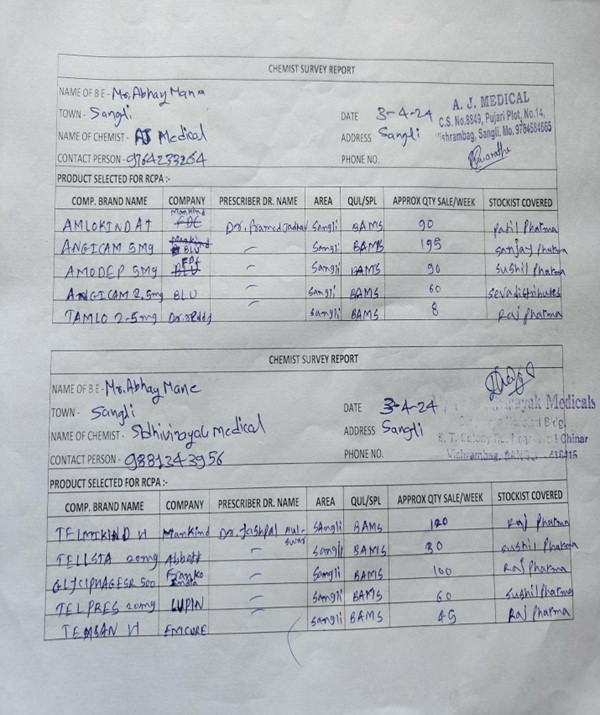 CHEMIST SURVEY REPORT
NAME OF B E - Mr. Abhay Mane
TOWN - Sangli
DATE 3-4-24
A. J. MEDICAL
C.S. No.8849, Pujari Plot, No.14,
Vishrambag, Sangli, Mo. 9764584665
NAME OF CHEMIST - AJ Medical
ADDRESS Sangli
CONTACT PERSON - 9764233264
PHONE NO.
PRODUCT SELECTED FOR RCPA :-
COMP. BRAND NAME COMPANY PRESCRIBER DR. NAME AREA QUL/SPL APPROX QTY SALE/WEEK STOCKIST COVERED
AMLOKIND AT Mankind Dr. Pramod Jadhav Sangli BAMS 90 Patil Pharma
ANGICAM 5mg BLU Sangli BAMS 195 Sanjay Pharma
AMODEP 5mg FDC Sangli BAMS 90 Sushil Pharma
ANGICAM 2.5mg BLU Sangli BAMS 60 Seva distributes
TAMLO 2.5mg Dr. reddy Sangli BAMS 8 Raj Pharma
CHEMIST SURVEY REPORT
NAME OF B E - Mr. Abhay Mane
TOWN - Sangli
DATE 3-4-24
NAME OF CHEMIST - Medical
ADDRESS Sangli
Medicals
Chinar
CONTACT PERSON - 9881243956
PHONE NO.
Vishrambag,
PRODUCT SELECTED FOR RCPA :-
COMP. BRAND NAME COMPANY PRESCRIBER DR. NAME AREA QUL/SPL APPROX QTY SALE/WEEK STOCKIST COVERED
TELMIKIND H Mankind Dr. Jashpal Sangli BAMS 120 Raj Pharma
TELLSTA 20mg Abbott Sangli BAMS 30 Sushil Pharma
GLYCIPHAGE SR 500 Franko Sangli BAMS 100 Raj Pharma
TELPRES 20mg LUPIN Sangli BAMS 60 Sushil Pharma
TEMSAN H EMCURE Sangli BAMS 45 Raj Pharma